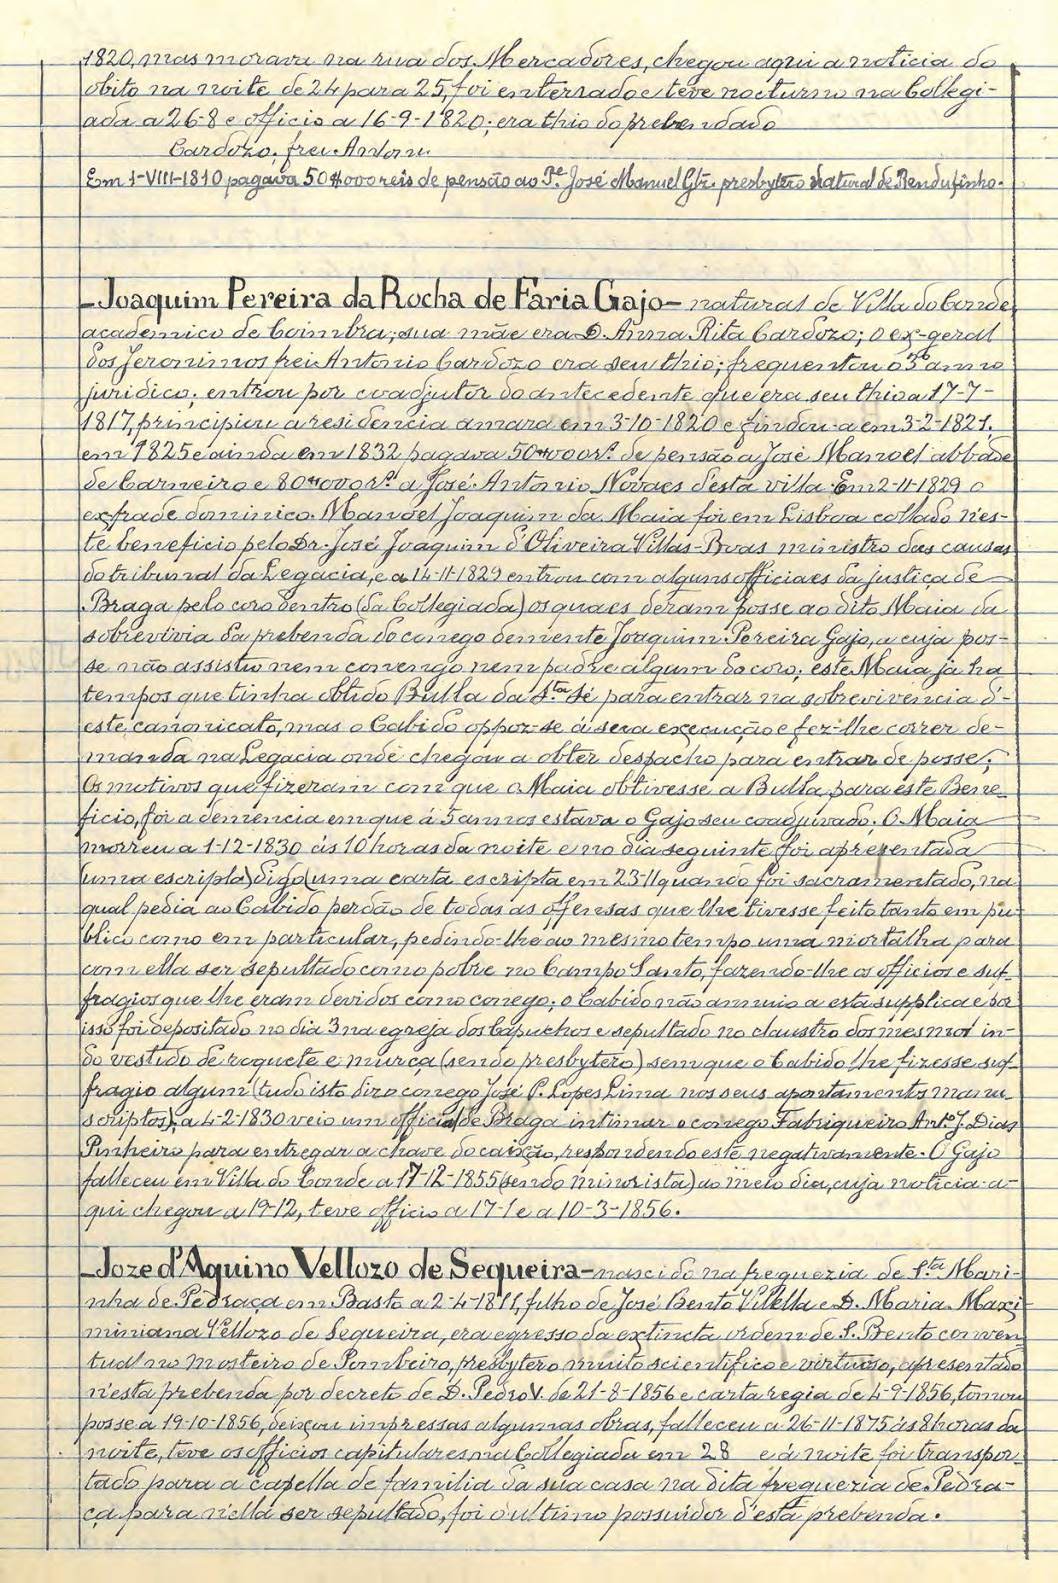 1820, mas morava na rua dos Mercadores, chegou aqui a noticia do
obito na noite de 24 para 25, foi enterrado e teve nocturno na Collegi-
ada a 26-8 e officio a 16-9-1820; era thio do prebendado
Cardozo, frei Antoni.
Em 1-VIII-1810 pagava 50$000 reis de pensão ao Pe José Manuel Glz. presbytero natural de Rendufinho.
-Joaquim Pereira da Rocha de Faria Gajo- naturas de Villa do Conde,
academico de Coimbra; sua mãe era D. Anna Rita Cardozo; o ex-geral
dos Jeronimos frei Antonio Cardozo era seu thio; frequentou o 3º anno
juridico; entrou por coadjutor do antecedente que era seu thio a 17-7-
1817, principiou a residencia amara em 3-10-1820 e findou-a em 3-2-1821,
em 1825 e ainda em 1832 pagava 50$000 rs. de pensão a José Manoel abbade
de Carneiro e 80$000 rs. a José Antonio Novaes d'esta villa. Em 2-11-1829 o
ex frade dominico Manoel Joaquim da Maia foi em Lisboa collado n'es-
te beneficio pelo Dr. José Joaquim d'Oliveira Villas-Boas ministro das causas
do tribunal da Legacia, e a 14-11-1829 entrou com alguns officiaes da justiça de
Braga pelo coro dentro (da Collegiada) os quaes deram posse ao dito Maia da
sobrevivia da prebenda do conego demente Joaquim Pereira Gajo, a cuja pos-
se não assistiu nem convengo nem padre algum do coro; este Maia já ha
tempos que tinha obtido Bulla da Sta Sé para entrar na sobrevivencia d'-
este canonicato, mas o Cabido oppoz-se á seva execução e fez-lhe correr de-
manda na Legacia onde chegou a obter despacho para entrar de posse;
Os motivos que fizeram com que o Maia obtivesse a Bulla para este Bene-
ficio, foi a demencia em que á 5 annos estava o Gajo seu coadjuvado; O Maia
morreu a 1-12-1830 ás 10 horas da noite e no dia seguinte foi apresentada
(uma escripta) digo (uma carta escripta em 23-11 quando foi sacramentado, na
qual pedia ao Cabido perdão de todas as offensas que lhe tivesse feito tanto em pu-
blico como em particular, pedindo-lhe ao mesmo tempo uma mortalha para
com ella ser sepultado como pobre no Campo Santo, fazendo-lhe os officios e suf-
fragios que lhe eram devidos como conego; o Cabido não annuio a esta supplica e por
isso foi depositado no dia 3 na egreja dos Capuchos e sepultado no claustro dos mesmos in-
do vestido de roquete e murça (sendo presbytero) sem que o Cabido lhe fizesse suf-
fragio algum (tudo isto diz o conego José P. Lopes Lima nos seus apontamentos manu-
scriptos), a 4-2-1830 veio um official de Braga intimar o conego Fabriqueiro Anto. J. Dias
Pinheiro para entregar a chave do caixão, respondendo este negativamente. O Gajo
falleceu em Villa do Conde a 17-12-1855 (sendo minorista) ao meio dia, cuja noticia a-
qui chegou a 19-12, teve officio a 17-1 e a 10-3-1856.
-Joze d'Aquino Vellozo de Sequeira- nascido na freguezia de Sta Mari-
nha de Pedraça em Basto a 2-4-1811, filho de José Bento Vilella e D. Maria Maxi-
miniana Vellozo de Sequeira, era egresso da extincta ordem de S. Bento conven-
tual no mosteiro de Pombeiro, presbytero muito scientifico e virtuoso, apresentado
n'esta prebenda por decreto de D. Pedro V. de 21-8-1856 e carta regia de 4-9-1856, tomou
posse a 19-10-1856, deixou impressas algumas obras, falleceu a 26-11-1875 ás 8 horas da
noite, teve os officios capitulares na Collegiada em 28 e á noite foi transpor-
tado para a capella de familia da sua casa na dita freguezia de Pedra-
ça para n'ella ser sepultado, foi o ultimo possuidor d'esta prebenda.